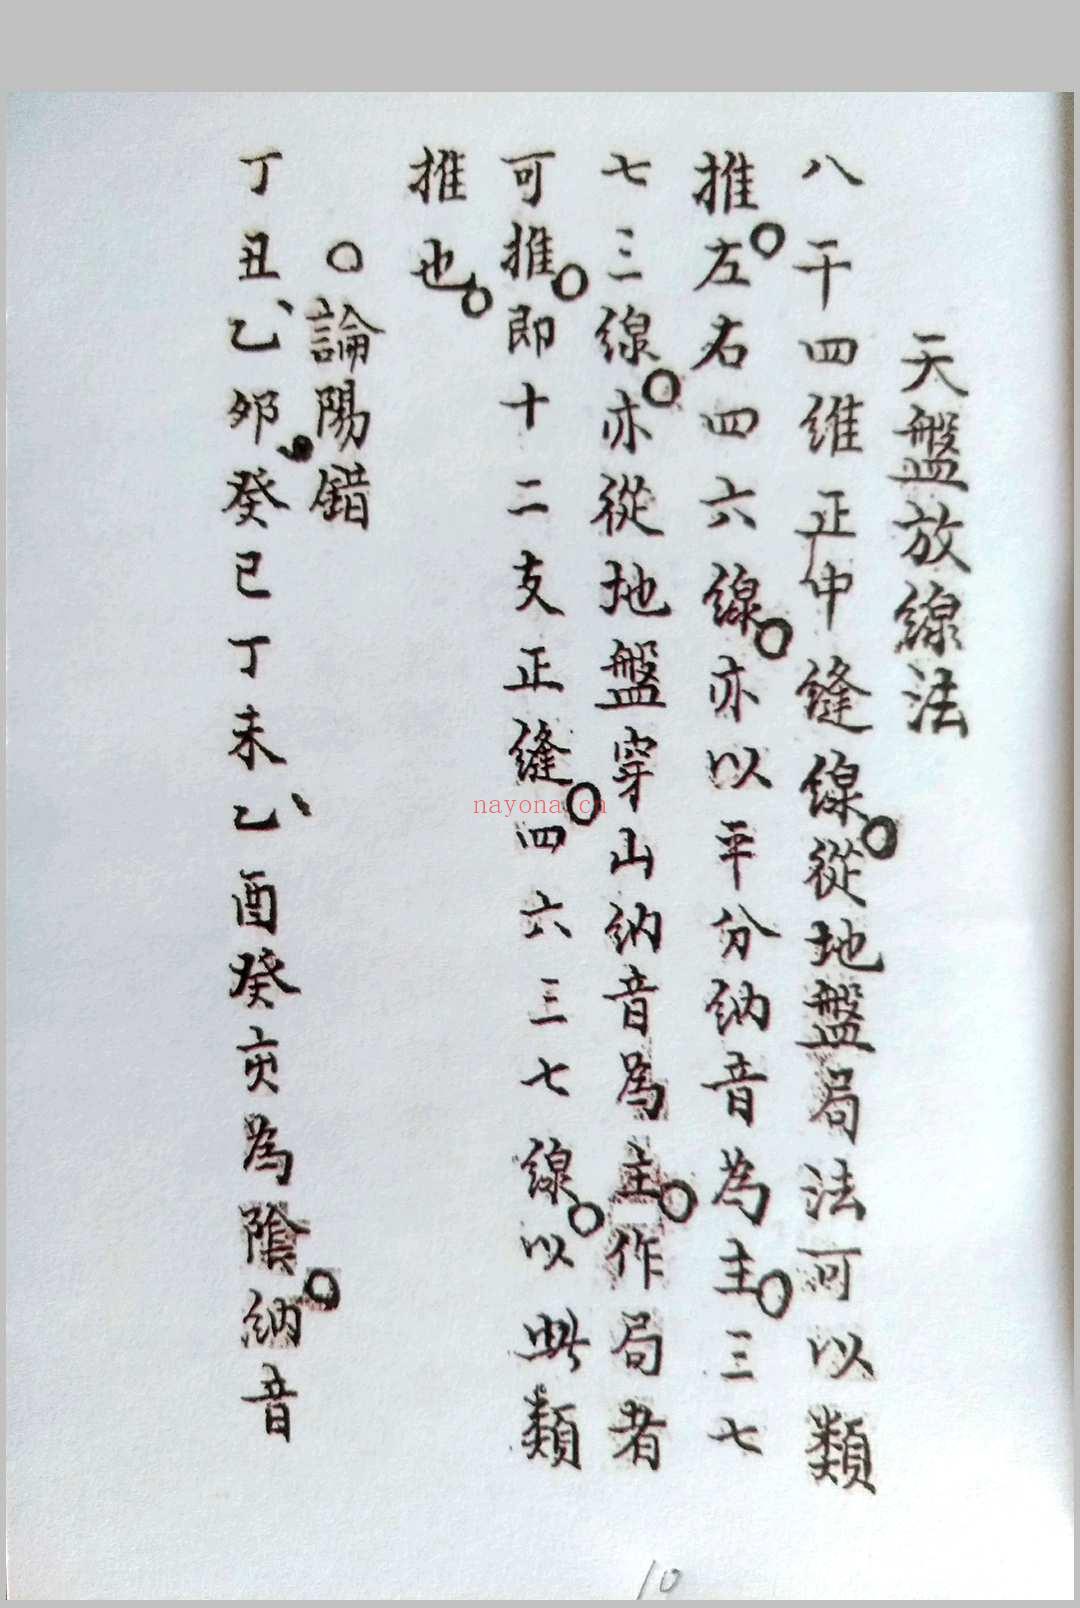 天盤放線法
八干四維正中縫線。從地盤局法可以類
推。左右四六線。亦以平分納音為主。三七
七三線。亦從地盤穿山納音為主。作局者
可推。即十二支正縫。四六三七線。以此類
推也。
○論陽錯
丁丑、乙卯。癸巳丁未、乙酉癸亥為陰。納音
nayona.cn
10